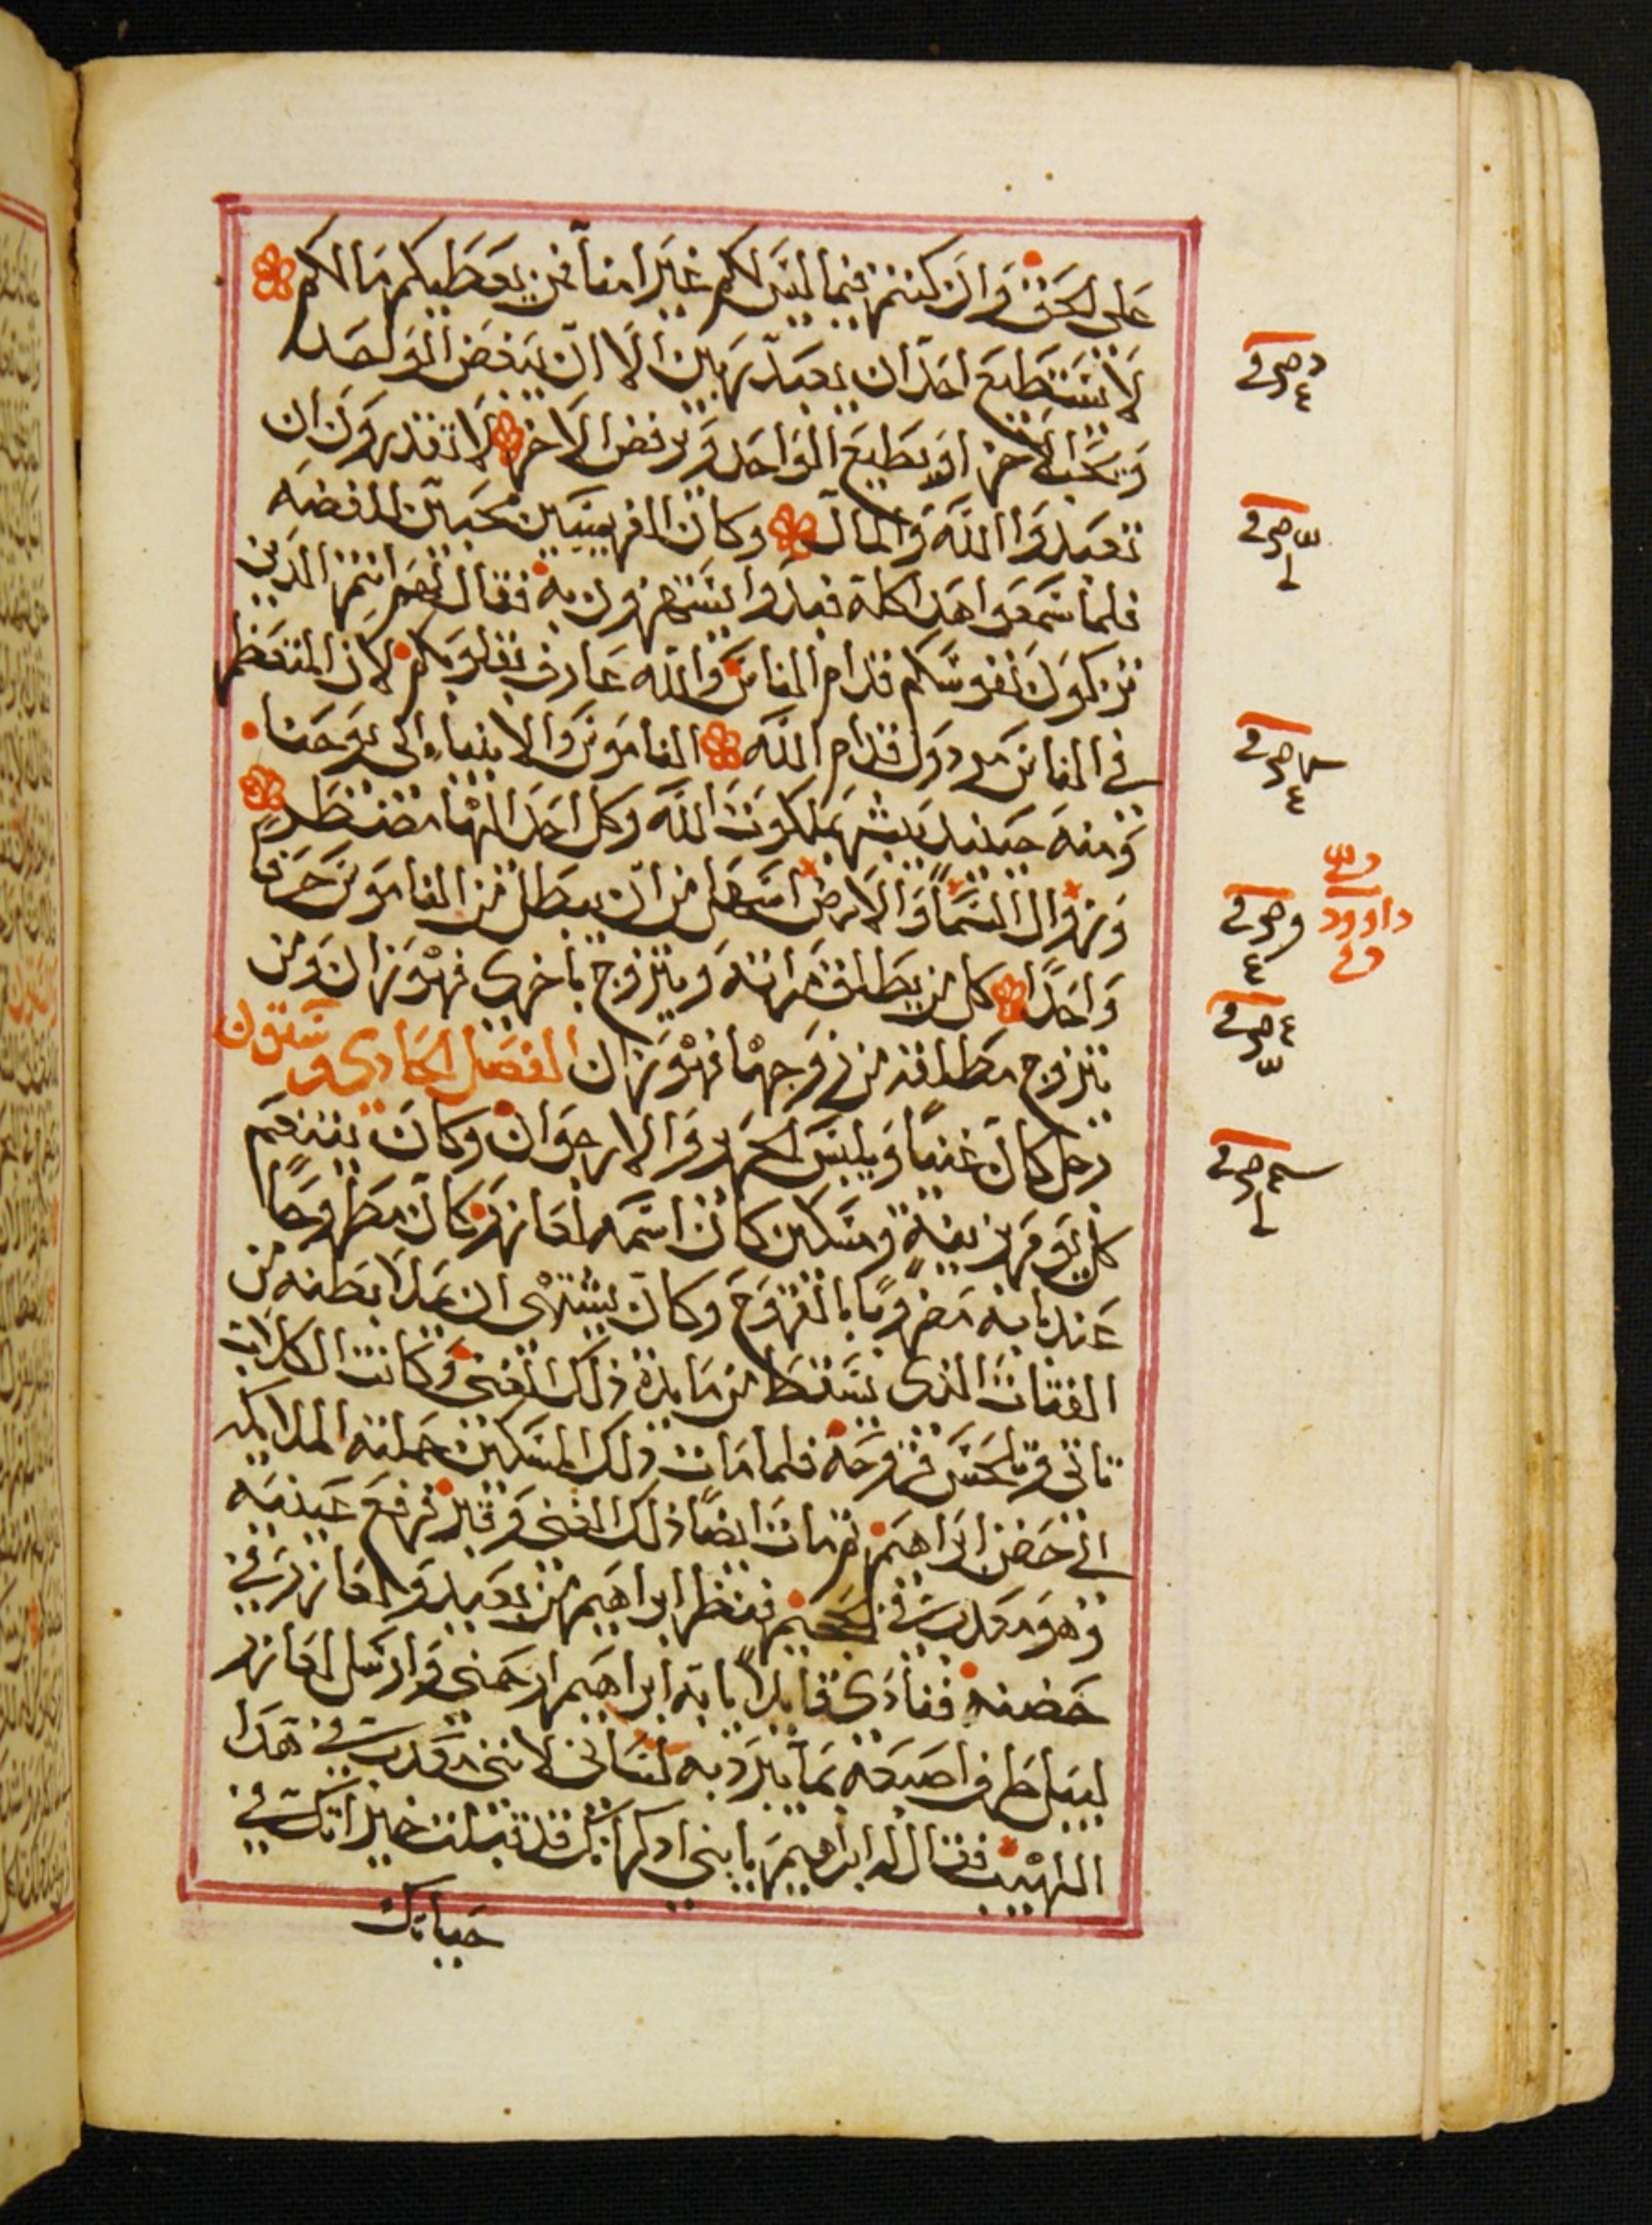 على الحق وان كنتم فيما ليس لكم غير امنآ فمن يعطيكم مالكم
لا يستطيع احد ان يعبد ربين الا ان يبغض الواحد
ويحب الاخر او يطيع الواحد ويرفض الاخر لا تقدرون ان
تعبدوا الله والمال وكان الفريسيين محبين للفضه
فلما سمعوا هدا كله فبدوا يستهزون به فقال لهم انتم الدين
تزكون نفوسكم قدام الناس والله عارف بقلوبكم لان المتعظم
في الناس مردول قدام الله الناموس والانبياء الى يوحنا
ومنه حينيد يبشر بملكوت الله وكل احد اليها مضطر
وزوال السمآ والارض اسهل من ان يبطل من الناموس حرفا
واحدًا كل من يطلق امراته ويتزوج باخرى فهو زان ومن
يتزوج مطلقه من زوجها فهو زان الفصل الحادي وستون
رجل كان غنيًا ويلبس الحرير والارجوان وكان يتنعم
كل يوم بزينة ومسكين كان اسمه لعازر وكان مطروحًا
عند بابه مضروبًا بالقروح وكان يشتهى ان يملا بطنه من
الفتات الذى يسقط من مايدة ذلك الغنى وكانت الكلاب
تاتى وتلحس قروحه فلما مات ذلك المسكين حملته الملايكه
الى حضن ابراهيم ثم مات ايضًا ذلك الغنى وقبر فرفع عينيه
وهو معدب في الجحيم فنظر ابراهيم من بعيد ولعازر في
حضنه فنادى قايلاً يا ابه ابراهيم ارحمنى وارسل لعازر
ليبل طرف اصبعه بمآ يبرد به لسانى لاننى معدب في هدا
اللهيب فقال له ابراهيم يا بنى ادكر انك قد قبلت خيراتك في
حياتك
داوود